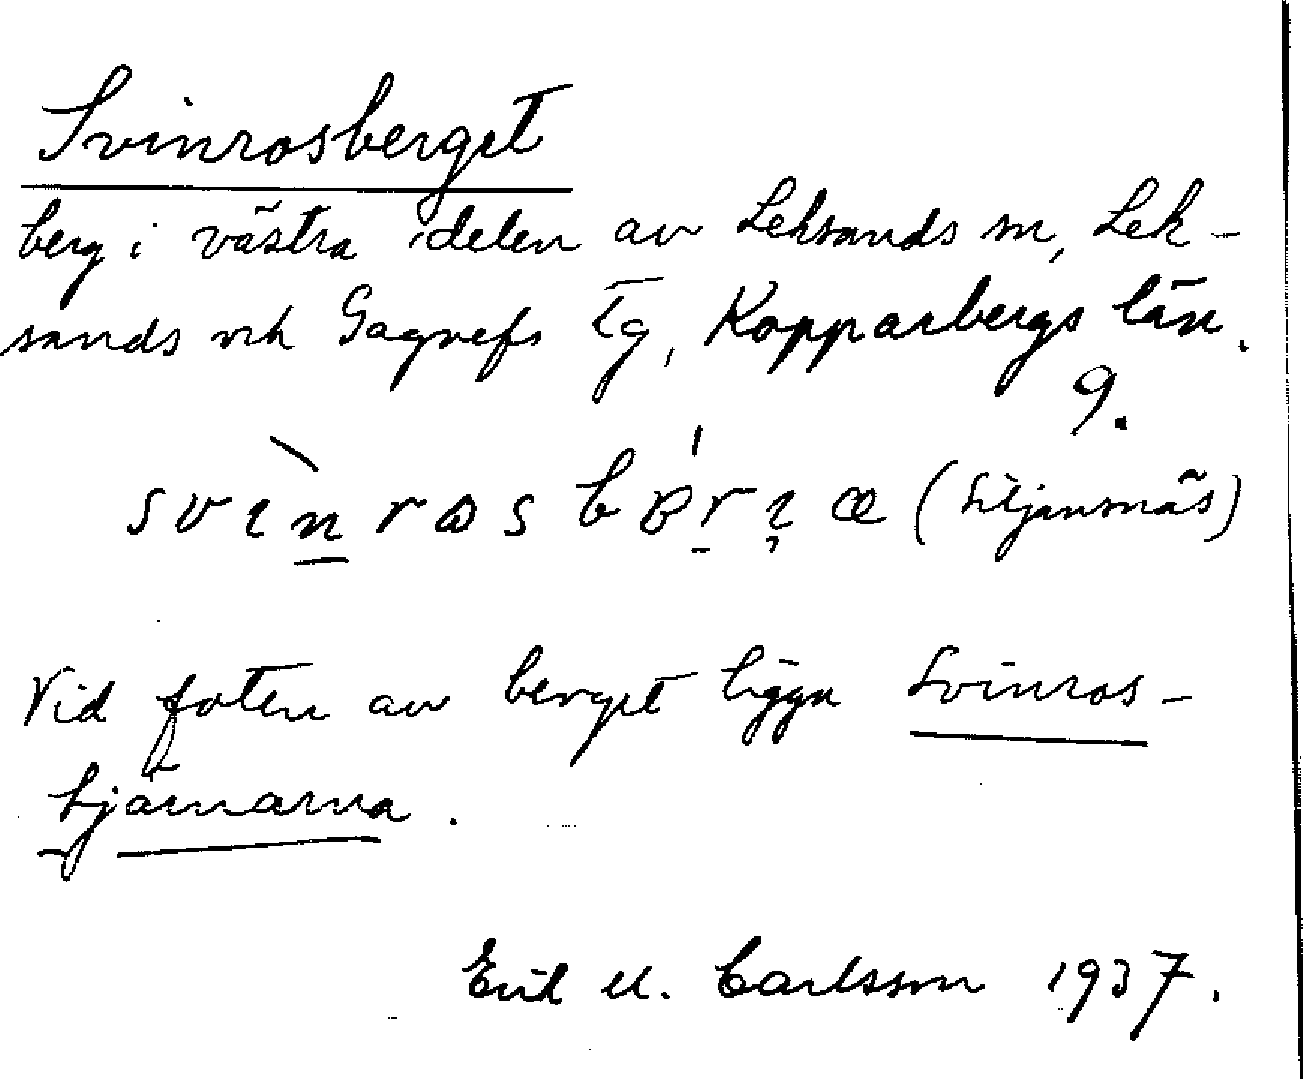 Svinrosberget
berg i västra delen av Leksands sn, Lek-
sands och Gagnefs tg, Kopparbergs län.
9.
(Siljansnäs)
Vid foten av berget ligga Svinros-
tjärnarna.
Erik M. Carlsson 1937.